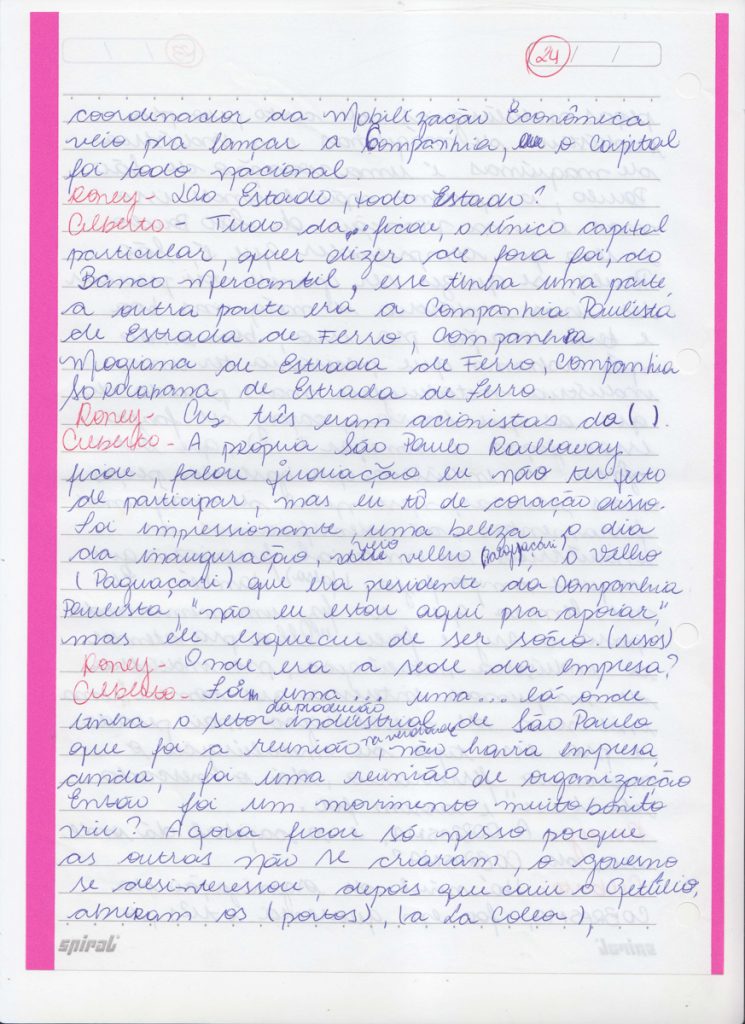 24 / /
coordenador da Mobilização Econômica
veio pra lançar a Companhia, o Capital
foi todo nacional
Roney - Do Estado, todo Estado?
Gilberto - Tudo da ficou, o único capital
particular, quer dizer de fora foi, do
Banco Mercantil, esse tinha uma parte
a outra parte era a Companhia Paulista
de Estrada de Ferro, Companhia
Mogiana de Estrada de Ferro, Companhia
Sorocabana de Estrada de Ferro
Roney - Os três eram acionistas da ( ).
Gilberto - A própria São Paulo Raillaway
ficou, falou eu não
de participar, mas eu tô de coração disso.
Foi impressionante uma beleza, o dia
da inauguração, veio velho (Paguaçari), o Velho
(Paguaçari) que era presidente da Companhia
Paulista, "não eu estou aqui pra apoiar,"
mas ele esqueceu de ser sócio. (risos)
Roney - Onde era a sede da empresa?
Gilberto - uma... uma... lá onde
tinha o setor da produção industrial de São Paulo
que foi a reunião, na verdade não havia empresa
ainda, foi uma reunião de organização
Então foi um movimento, muito bonito
viu? Agora ficou só nisso porque
as outras não se criaram, o governo
se desinteressou, depois que caiu o Getúlio,
abriram os (portos), (a La Colca),
spiral